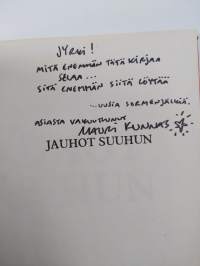 JYRKI!
MITÄ ENEMMÄN TÄTÄ KIRJAA
SELAA...
SITÄ ENEMMÄN SIITÄ LÖYTÄÄ
...UUSIA SORMENJÄLKIÄ.
ASIASTA VAKUUTTUNUT
MAURI KUNNAS
JAUHOT SUUHUN